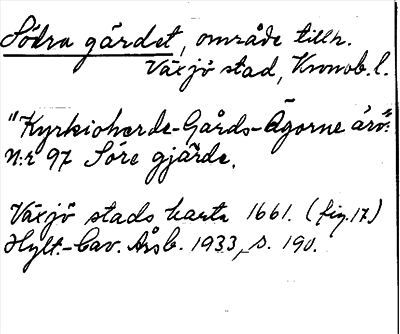 Södra gärdet, område tillh.
Växjö stad, Kronob. l.
"Kyrkioherde-Gårds-Ägorne äro:"
N:r 97 Söre gjärde.
Växjö stads karta 1661. (fig. 17.)
Hylt.-Cav. Årsb. 1933, s. 190.